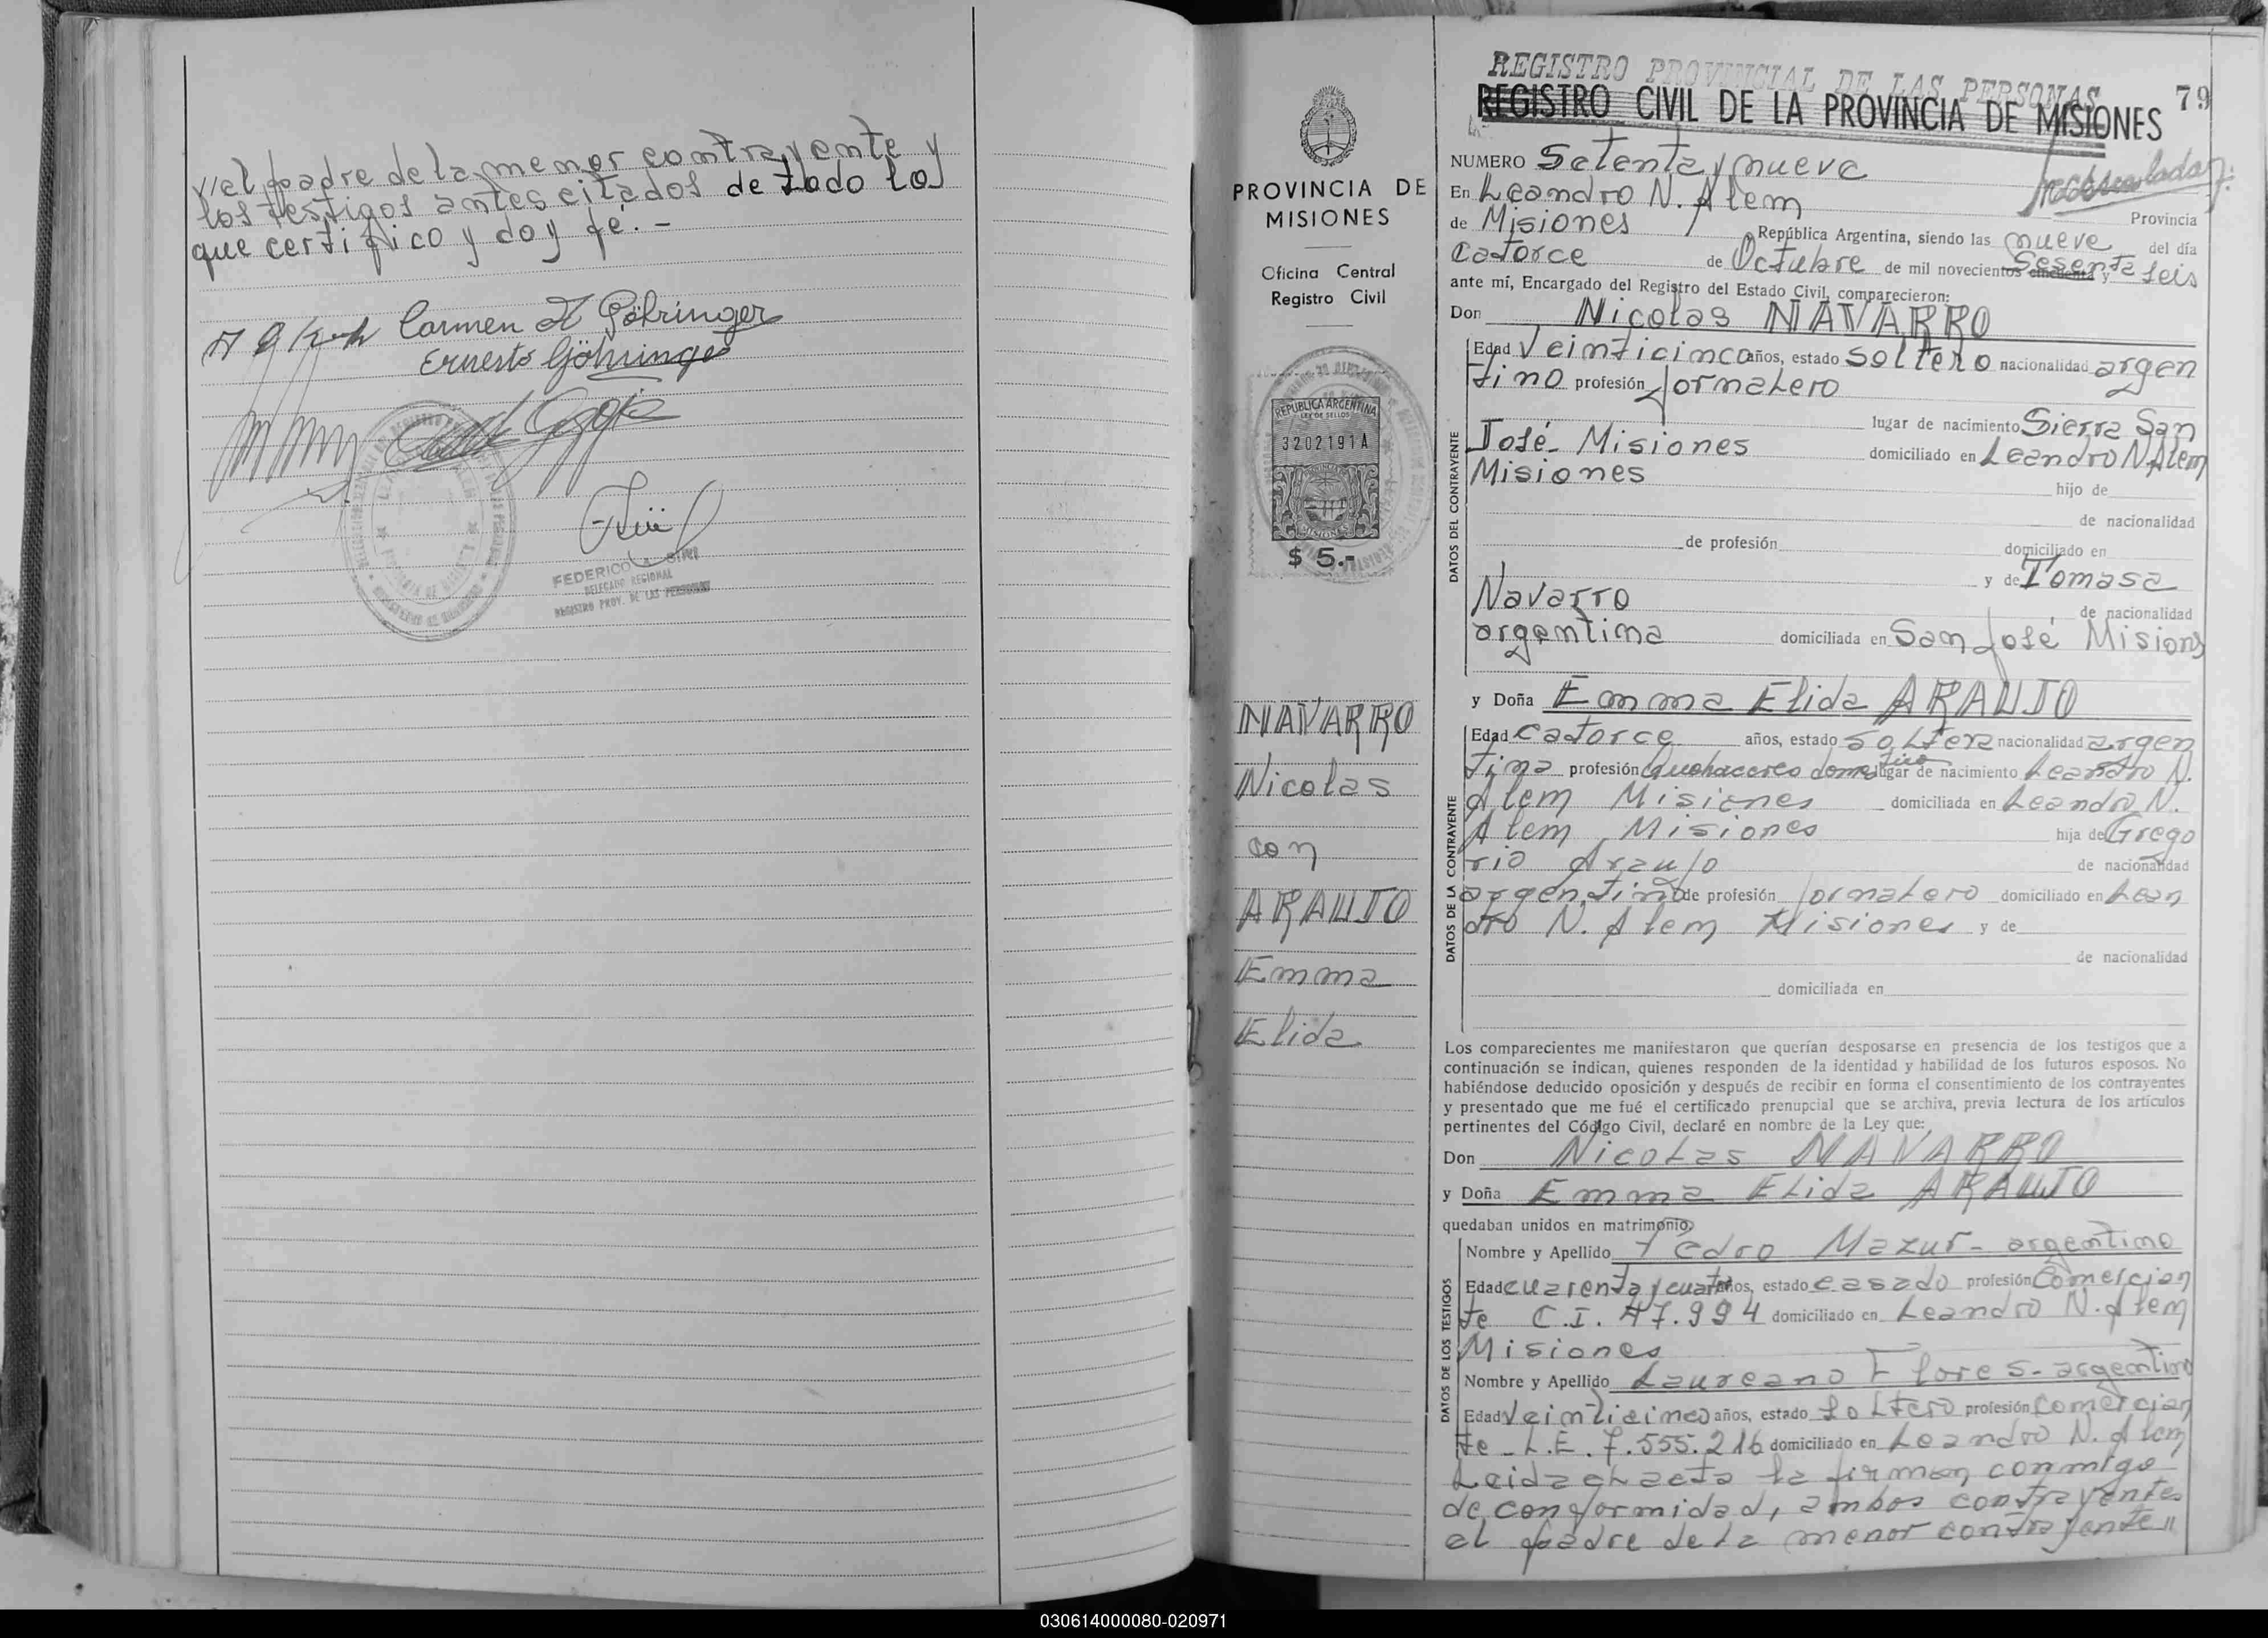 y/el padre de la menor contrayente y
los testigos antes citados de todo lo
que certifico y doy fé.-
Carmen H Göhringer
Ernesto Göhringer
FEDERICO
DELEGADO REGIONAL
REGISTRO PROV. DE LAS PERSONAS
PROVINCIA DE
MISIONES
Oficina Central
Registro Civil
REPUBLICA ARGENTINA
LEY DE SELLOS
3202191A
MISIONES
$ 5.-
NAVARRO
Nicolas
con
ARAUJO
Emma
Elida
REGISTRO PROVINCIAL DE LAS PERSONAS
REGISTRO CIVIL DE LA PROVINCIA DE MISIONES
79
NUMERO Setenta y nueve
En Leandro N. Alem
Provincia
de Misiones, República Argentina, siendo las nueve del día
catorce de Octubre de mil novecientos cincuenta y Sesenta seis
ante mí, Encargado del Registro del Estado Civil, comparecieron:
Don Nicolas NAVARRO
Edad Veinticinco años, estado soltero nacionalidad argen
tino profesión Jornalero
lugar de nacimiento Sierra San
José- Misiones domiciliado en Leandro N. Alem
Misiones hijo de
de nacionalidad
de profesión domiciliado en
y de Tomasa
Navarro de nacionalidad
argentina domiciliada en San José Misiones
DATOS DEL CONTRAYENTE
y Doña Emma Elida ARAUJO
Edad catorce años, estado soltera nacionalidad argen
tina profesión Quehaceres domestico lugar de nacimiento Leandro N.
Alem Misiones domiciliada en Leandro N.
Alem Misiones hija de Grego
rio Araujo de nacionalidad
argentino de profesión Jornalero domiciliado en Lean
dro N. Alem Misiones y de
de nacionalidad
domiciliada en
DATOS DE LA CONTRAYENTE
Los comparecientes me manifestaron que querían desposarse en presencia de los testigos que a
continuación se indican, quienes responden de la identidad y habilidad de los futuros esposos. No
habiéndose deducido oposición y después de recibir en forma el consentimiento de los contrayentes
y presentado que me fué el certificado prenupcial que se archiva, previa lectura de los artículos
pertinentes del Código Civil, declaré en nombre de la Ley que:
Don Nicolas NAVARRO
y Doña Emma Elida ARAUJO
quedaban unidos en matrimonio,
Nombre y Apellido Pedro Mazur- argentino
Edad cuarenta y cuatro años, estado casado profesión Comercian
te C.I. 47.994 domiciliado en Leandro N. Alem
Misiones
Nombre y Apellido Laureano Flores- argentino
Edad Veinticinco años, estado soltero profesión Comercian
te- L.E. 7.555.216 domiciliado en Leandro N. Alem
DATOS DE LOS TESTIGOS
Leida el acta la firman conmigo
de conformidad, ambos contrayentes
el padre de la menor contrayente"
030614000080-020971